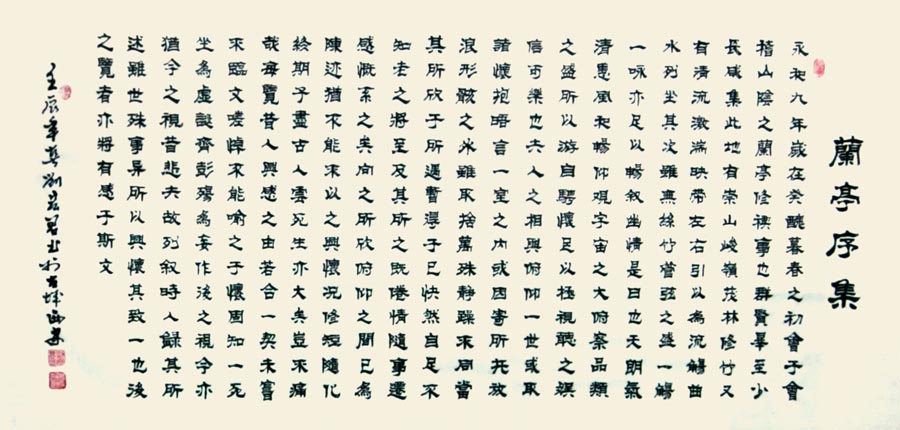 蘭亭序集
永和九年歲在癸醜暮春之初會于會
稽山陰之蘭亭修禊事也群賢畢至少
長咸集此地有崇山峻嶺茂林修竹又
有清流激湍映帶左右引以為流觴曲
水列坐其次雖無絲竹管弦之盛一觴
一咏亦足以暢敘幽情是日也天朗氣
清惠風和暢仰觀宇宙之大俯察品類
之盛所以游目騁懷足以極視聽之娛
信可樂也夫人之相與俯仰一世或取
諸懷抱晤言一室之内或因寄所托放
浪形骸之外雖取捨萬殊靜躁不同當
其所欣于所遇暫得于己快然自足不
知老之將至及其所之既倦情隨事遷
感慨系之矣向之所欣俯仰之間已為
陳迹猶不能不以之興懷況修短隨化
終期于盡古人雲死生亦大矣豈不痛
哉每覽昔人興感之由若合一契未嘗
不臨文嗟悼不能喻之于懷固知一死
坐為虛誕齊彭殤為妄作後之視今亦
猶今之視昔悲夫故列敘時人錄其所
述雖世殊事異所以興懷其致一也後
之覽者亦將有感于斯文
壬辰年劉